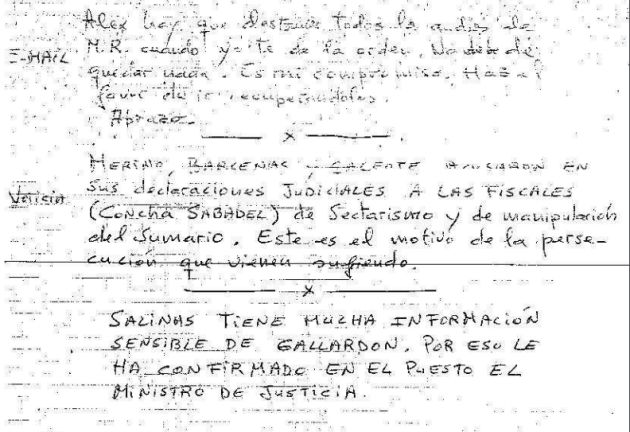 Alex hay que destruir todos los audios de
E-MAIL M.R. cuando yo te de la orden. No debe de
quedar nada. Es mi compromiso. Haz el
favor de ir recuperándolos.
Abrazo.
x
MERINO, BARCENAS Y GALEOTE ACUSARON EN
Noticia sus declaraciones JUDICIALES A LAS FISCALES
(CONCHA SABADEL) de Sectarismo y de manipulación
del Sumario. Este es el motivo de la perse-
cución que vienen sufriendo.
x
SALINAS TIENE MUCHA INFORMACIÓN
SENSIBLE DE GALLARDON. POR ESO LE
HA CONFIRMADO EN EL PUESTO EL
MINISTRO DE JUSTICIA.